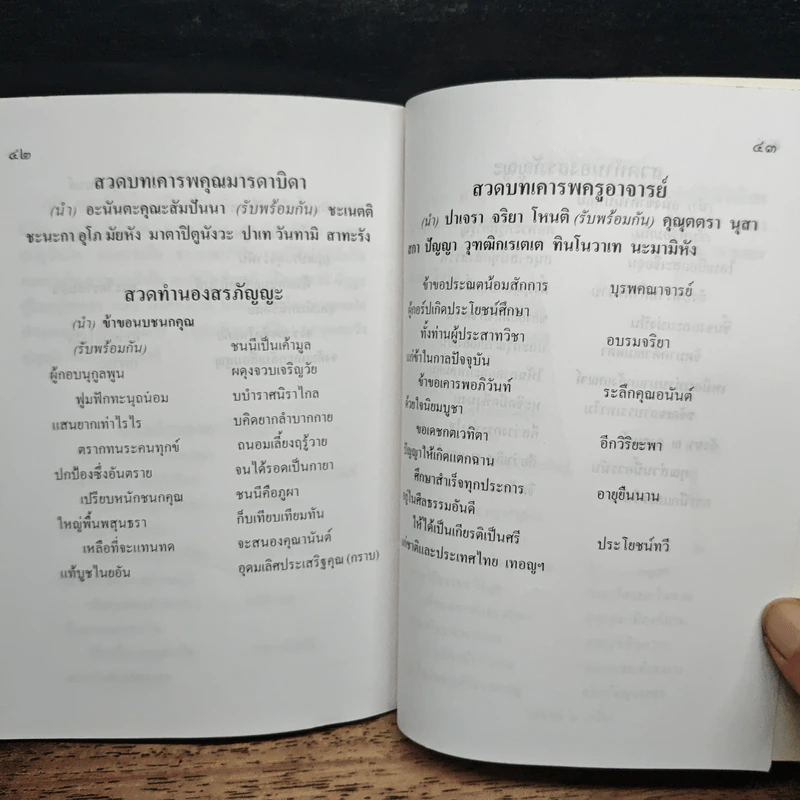 ๔๒
สวดบทเคารพคุณมารดาบิดา
(นำ) อะนันตะคุณะสัมปันนา (รับพร้อมกัน) ชะเนตติ
ชะนะกา อุโภ มัยหัง มาตาปิตูนังวะ ปาเท วันทามิ สาทะรัง
สวดทำนองสรภัญญะ
(นำ) ข้าขอนบชนกคุณ
(รับพร้อมกัน) ชนนีเป็นเค้ามูล
ผู้กอบนุกูลพูน ผดุงจวบเจริญวัย
ฟูมฟักทะนุถน้อม บบำราศนิราไกล
แสนยากเท่าไรไร บคิดยากลำบากกาย
ตรากทนระคนทุกข์ ถนอมเลี้ยงฤรู้วาย
ปกป้องซึ่งอันตราย จนได้รอดเป็นกายา
เปรียบหนักชนกคุณ ชนนีคือภูผา
ใหญ่พื้นพสุนธรา ก็บเทียบเทียมทัน
เหลือที่จะแทนทด จะสนองคุณานันต์
แท้บูชไนยอัน อุดมเลิศประเสริฐคุณ (กราบ)
๔๓
สวดบทเคารพครูอาจารย์
(นำ) ปาเจรา จริยา โหนติ (รับพร้อมกัน) คุณุตตรา นุสา
สกา ปัญญา วุฑฒิกเรเตเต ทินโนวาเท นะมามิหัง
ข้าขอประณตน้อมสักการ บุรพคณาจารย์
ผู้กอร์ปเกิดประโยชน์ศึกษา
ทั้งท่านผู้ประสาทวิชา อบรมจริยา
แก่ข้าในกาลปัจจุบัน
ข้าขอเคารพอภิวันท์ ระลึกคุณอนันต์
ด้วยใจนิยมบูชา
ขอเดชกตเวทิตา อีกวิริยะพา
ปัญญาให้เกิดแตกฉาน
ศึกษาสำเร็จทุกประการ อายุยืนนาน
อยู่ในศีลธรรมอันดี
ให้ได้เป็นเกียรติเป็นศรี ประโยชน์ทวี
แก่ชาติและประเทศไทย เทอญฯ